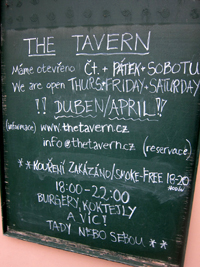 THE TAVERN
Máme otevřeno Čt. + PÁTEK + SOBOTU
We are open THURS + FRIDAY + SATURDAY
!! DUBEN/APRIL !!
(informace) www.thetavern.cz
info@thetavern.cz (reservace)
** KOUŘENÍ ZAKÁZÁNO/SMOKE-FREE 18-20
18:00-22:00
BURGERY, KOKTEJLY
A VÍC!
TADY NEBO SEBOU **